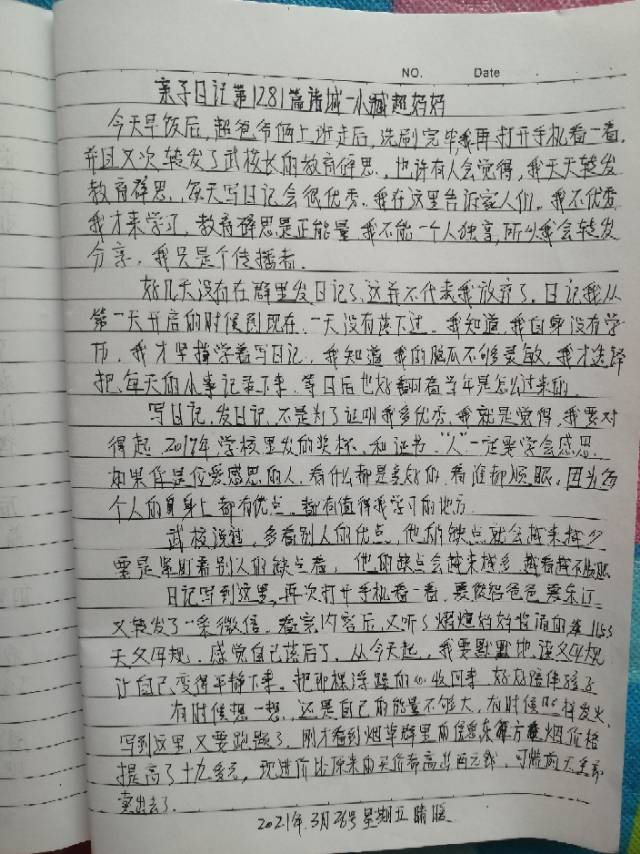 NO.    Date
亲子日记第1281篇诸城-小城超妈妈
今天早饭后,超爸爷俩上班走后,洗刷完毕我再打开手机看一看,
并且又次转发了武校长的教育群思,也许有人会觉得,我天天转发
教育群思,每天写日记会很优秀,我在这里告诉家人们,我不优秀
我才来学习,教育群思是正能量,我不能一个人独享,所以我会转发
分享,我只是个传播者.
好几天没有在群里发日记了,这并不代表我放弃了,日记我从
第一天开启的时候到现在,一天没有落下过,我知道,我自身没有学
历,我才坚持学着写日记,我知道我的脑瓜不够灵敏,我才选择
把每天的小事记录下来,等日后也好翻看当年是怎么过来的.
写日记,发日记,不是为了证明我多优秀,我就是觉得,我要对
得起2019年学校里发的奖杯,和证书."人"一定要学会感恩
如果你是位爱感恩的人,看什么都是美好的,看谁都顺眼,因为每
个人的身上都有优点,都有值得我学习的地方.
武校说过,多看别人的优点,他的缺点就会越来越少
要是紧盯着别人的缺点看,他的缺点会越来越多,越看越不顺眼
日记写到这里,再次打开手机看一看,
又转发了一条微信,看完内容后,又听了 妈妈 第1163
天父母规,感觉自己落后了,从今天起,我要默默地读父母规
让自己变得平静下来,把那棵浮躁的心收回来,好好陪伴孩子
有时候想一想,还是自己的能量不够大,有时候照样发火
写到这里,又要跑题了,刚才看到烟草群里的信息,东方 烟价格
提高了十九多元,现进价比原来的买价都高出两元钱,可惜前天全部
卖出去了.
2021年3月26号星期五 晴 暖